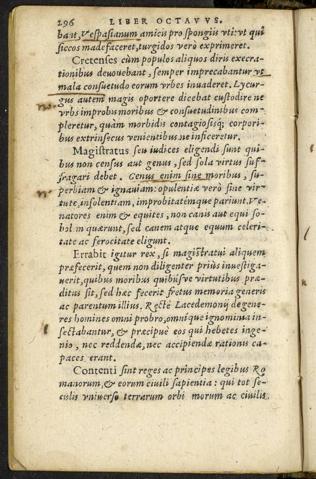 296 LIBER OCTAVVS.
bant, Vespasianum amicis pro spongiis vti: vt qui
siccos madefaceret, turgidos verò exprimeret.
Cretenses cùm populos aliquos diris execra-
tionibus deuouebant, semper imprecabantur vt
mala consuetudo eorum vrbes inuaderet. Lycur-
gus autem magis oportere dicebat custodire ne
vrbs improbis moribus & consuetudinibus com-
pleretur, quàm morbidis contagiosisq; corpori-
bus extrinsecus venientibus ne inficeretur.
Magistratus seu iudices eligendi sunt quibus
bus non census aut genus, sed sola virtus suf-
fragari debet. Genus enim sine moribus, su-
perbiam & ignauiam: opulentia verò sine vir-
tute, insolentiam, improbitatémque pariunt. Ve-
natores enim & equites, non canis aut equi sobo-
lem quærunt, sed canem atque equum celeri-
tate ac ferocitate eligunt.
Errabit igitur rex, si magistratui aliquem
præfecerit, quem non diligenter priùs inuestiga-
uerit, quibus moribus quibúsve virtutibus præ-
ditus sit, sed hæc fecerit fretus memoria generis
ac parentum illius. Rectè Lacedemonij degene-
res homines omni probro, omnique ignominia in-
sectabantur, & præcipuè eos qui hebetes inge-
nio, nec reddendæ, nec accipiendæ rationis ca-
paces erant.
Contenti sint reges ac principes legibus Ro
manorum, & eorum ciuili sapientia: qui tot se-
culis vniuerso terrarum orbi morum ac ciuilis